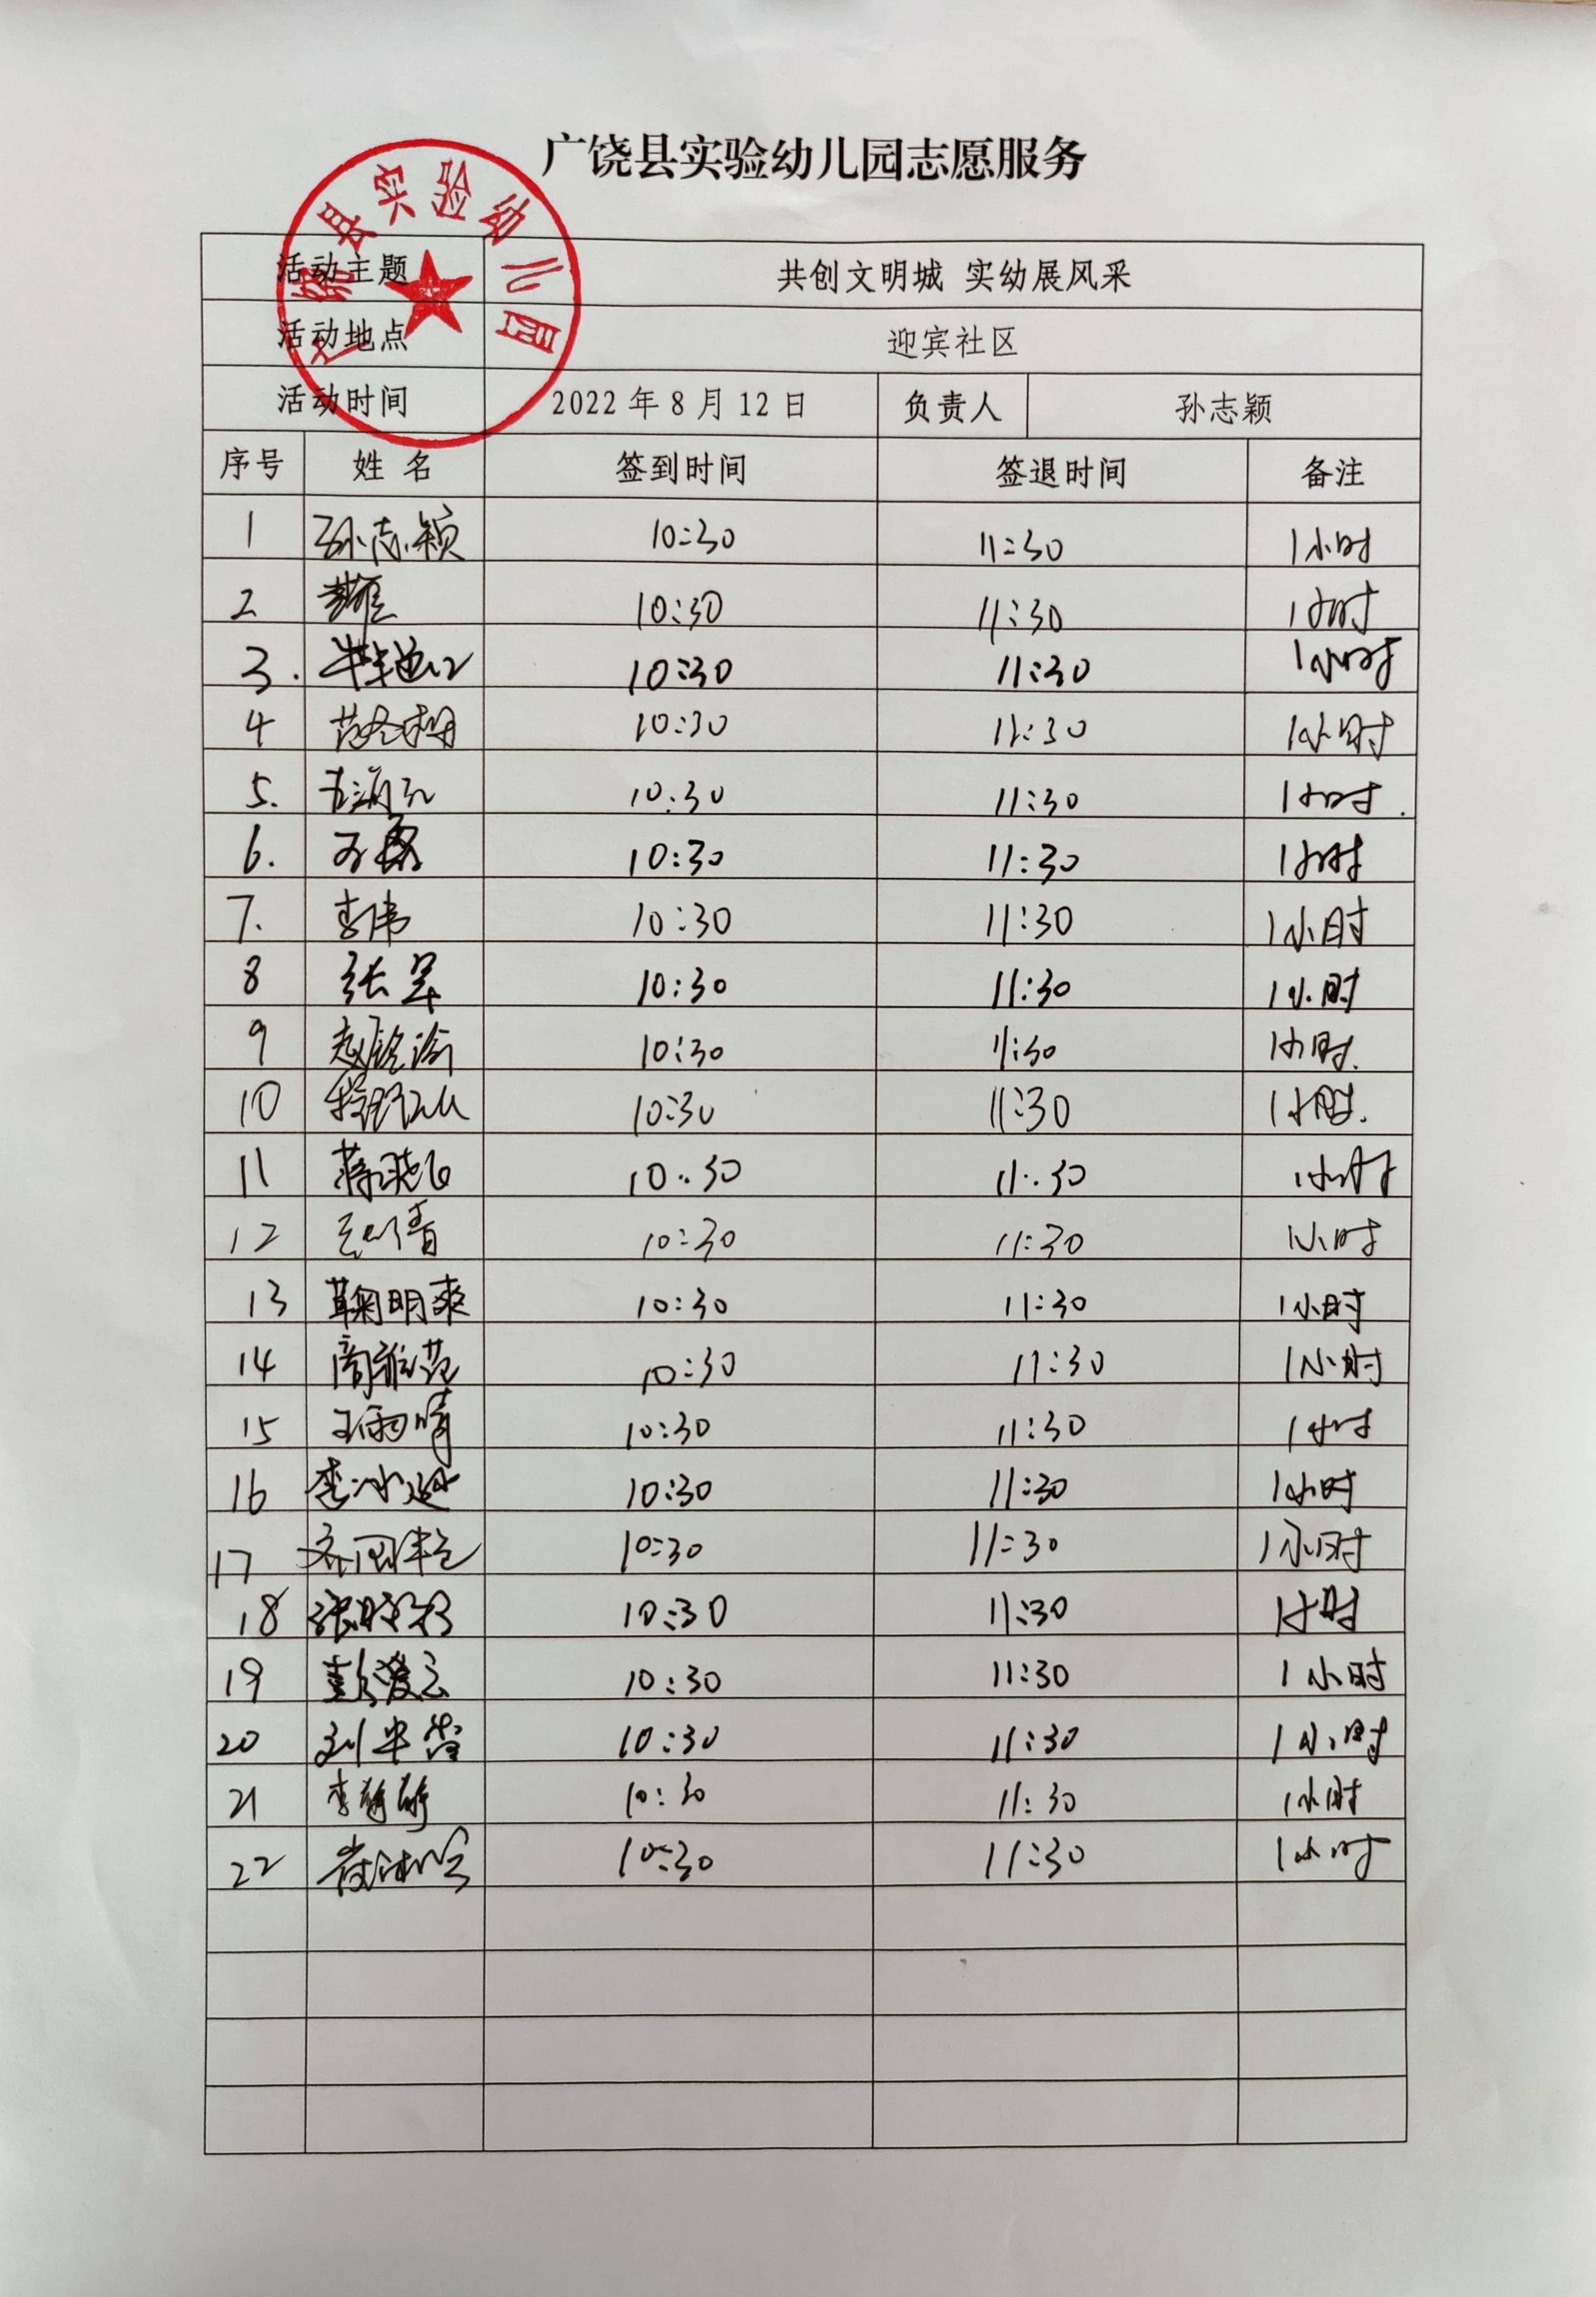 广饶县实验幼儿园志愿服务
广饶县实验幼儿园
活动主题 共创文明城 实幼展风采
活动地点 迎宾社区
活动时间 2022年8月12日 负责人 孙志颖
序号 姓名 签到时间 签退时间 备注
1 孙志颖 10:30 11:30 1小时
2 10:30 11:30 1小时
3. 10:30 11:30 1小时
4 范冬梅 10:30 11:30 1小时
5. 10:30 11:30 1小时.
6. 10:30 11:30 1小时
7. 李伟 10:30 11:30 1小时
8 张军 10:30 11:30 1小时
9 10:30 11:30 1小时.
10 10:30 11:30 1小时.
11 蒋晓飞 10:30 11:30 1小时
12 10:30 11:30 1小时
13 鞠明爽 10:30 11:30 1小时
14 10:30 11:30 1小时
15 王雨晴 10:30 11:30 1小时
16 10:30 11:30 1小时
17 10:30 11:30 1小时
18 10:30 11:30 1小时
19 彭爱云 10:30 11:30 1小时
20 10:30 11:30 1小时
21 李静静 10:30 11:30 1小时
22 10:30 11:30 1小时